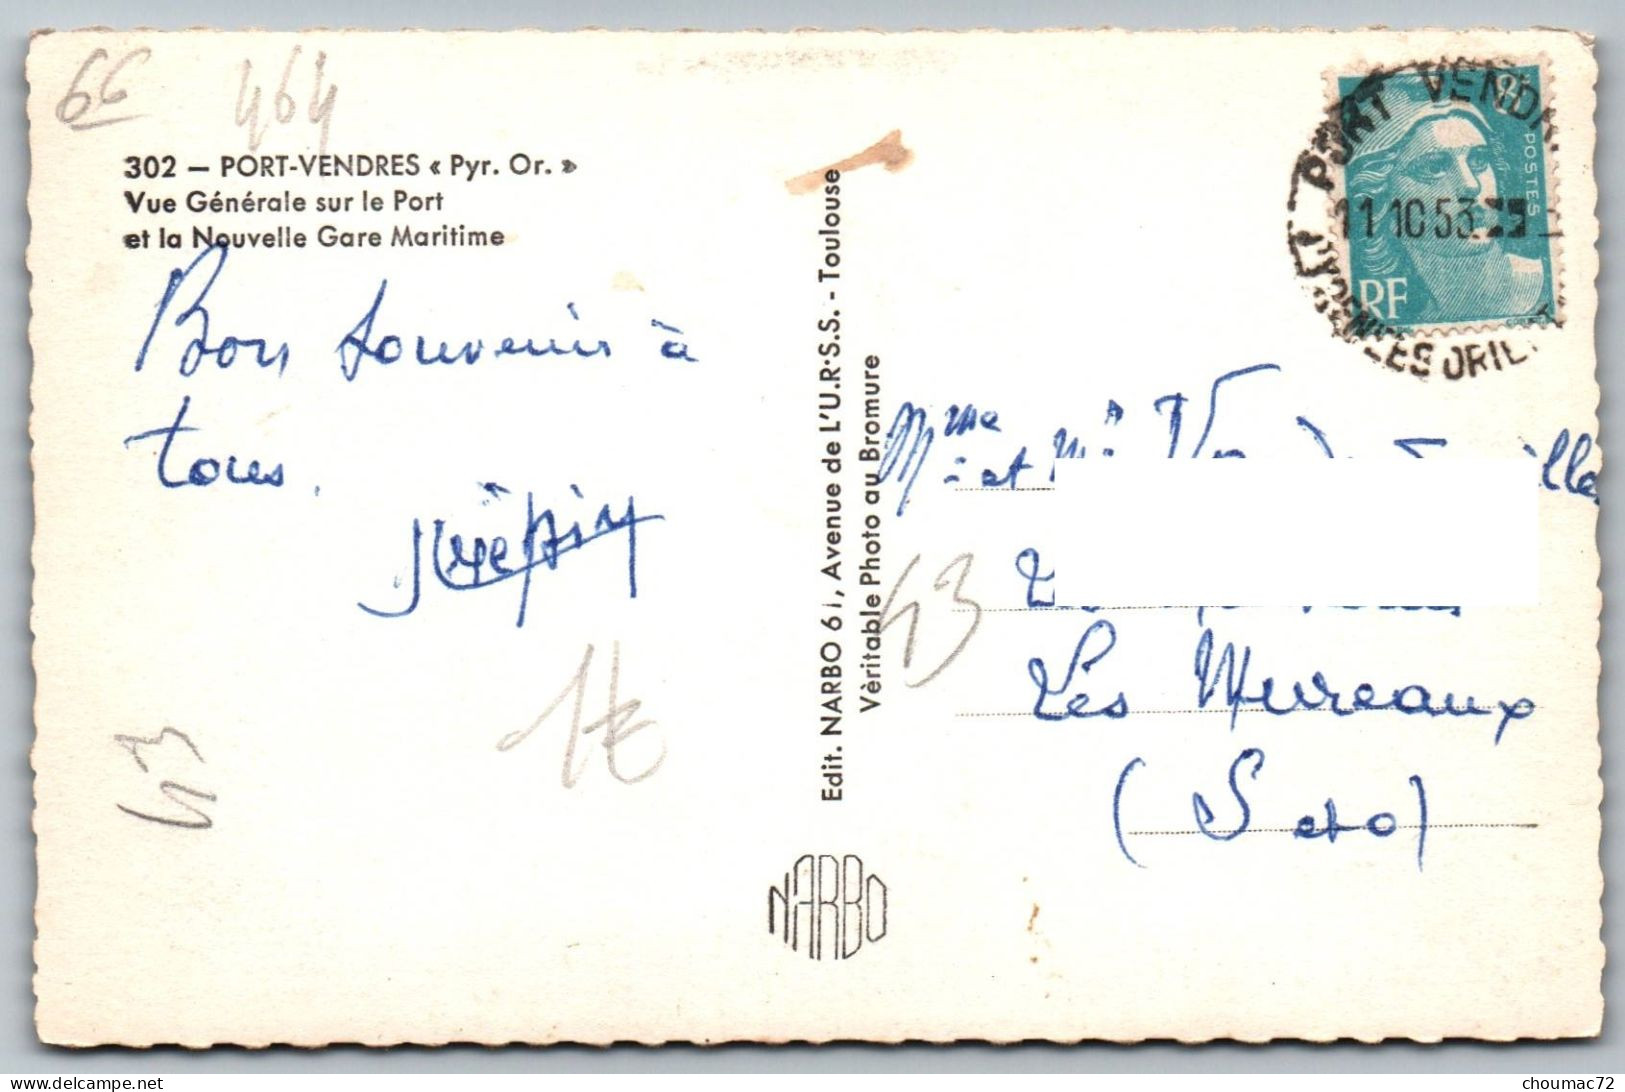 66
464
302 — PORT-VENDRES « Pyr. Or. »
Vue Générale sur le Port
et la Nouvelle Gare Maritime
Bon souvenir à
tous.
1€
43
Edit. NARBO 61, Avenue de L'U.R.S.S. - Toulouse
Véritable Photo au Bromure
NARBO
PORT VENDR
11 10 53
ORIE
POSTES
RF
Mme et Mr
43
Les Mureaux
(S et O)
choumac72